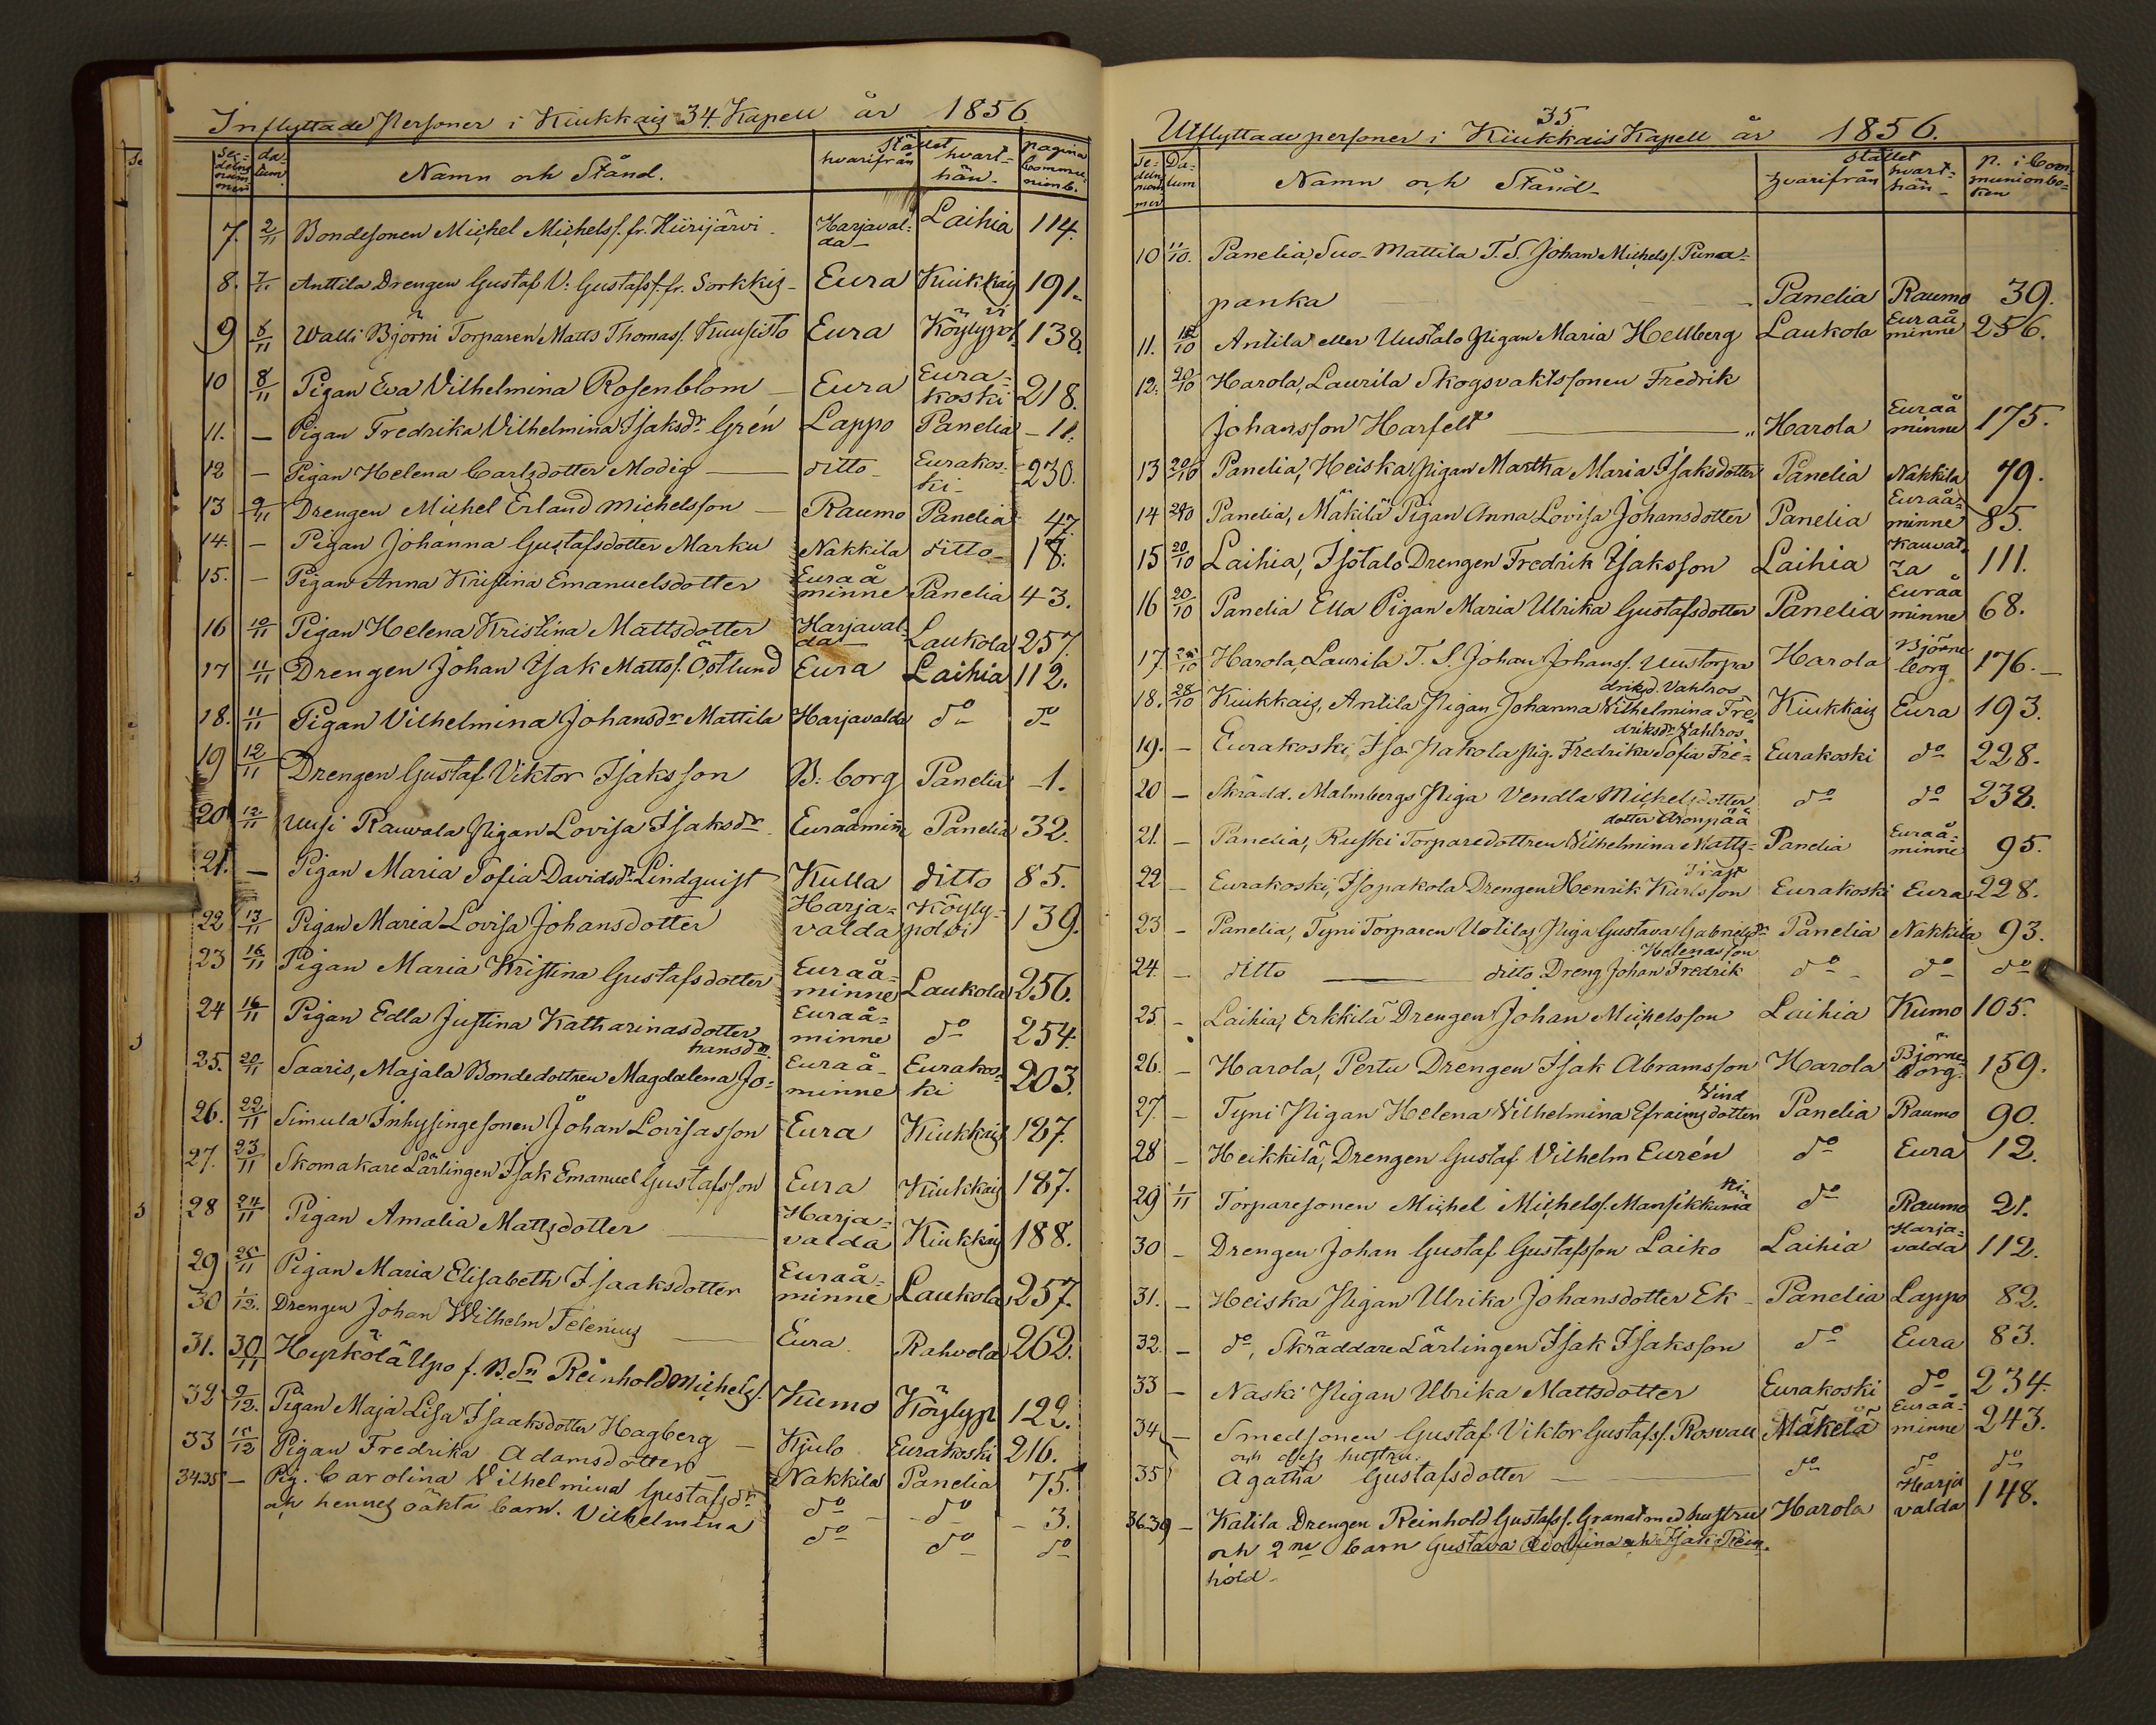 Inflyttade Personer i Kiukkais 34. Kapell år 1856.
Sedelns nummer | datum. | Namn och Stånd. | Stället hvarifrån | hvarthän | pagina Communionb.
7. 2/11 Bondesonen Michel Michelss. fr. Hiirijärvi Harjavalda Laihia 114.
8. 7/11 Anttila Drengen Gustaf V: Gustafss. fr. Sorkkis Eura Kiukkais 191.
9 8/11 Walli Björni Torparen Matts Thomass. Kuusisto Eura Köylypol. 138.
10 8/11 Pigan Eva Vilhelmina Rosenblom Eura Eurakoski 218.
11. — Pigan Fredrika Vilhelmina Isaksdr Grén Lappo Panelia 11.
12 — Pigan Helena Carlsdotter Modig ditto Eurakoski 230.
13 9/11 Drengen Michel Erland Michelsson Raumo Panelia 47.
14. — Pigan Johanna Gustafsdotter Marku Nakkila ditto 18.
15. — Pigan Anna Kristina Emanuelsdotter Euraåminne Panelia 43.
16 10/11 Pigan Helena Kristina Mattsdotter Harjavalda Laukola 257.
17 11/11 Drengen Johan Isak Mattss. Östlund Eura Laihia 112.
18. 11/11 Pigan Vilhelmina Johansdr Mattila Harjavalda do do
19 12/11 Drengen Gustaf Viktor Isaksson B:borg Panelia 1.
20 12/11 Uusi Rauvala Pigan Lovisa Isaksdr Euraåminne Panelia 32.
21. — Pigan Maria Sofia Davidsdr Lindquist Kulla ditto 85.
22 13/11 Pigan Maria Lovisa Johansdotter Harjavalda Köylypolvi 139.
23 16/11 Pigan Maria Kristina Gustafsdotter Euraåminne Laukola 256.
24 16/11 Pigan Edla Justina Katharinasdotter Euraåminne do 254.
25. 20/11 Saaris, Majala Bondedottren Magdalena Johansdr. Euraåminne Eurakoski 203.
26. 22/11 Simula Inhysingesonen Johan Lovisasson Eura Kiukkais 187.
27. 23/11 Skomakare Lärlingen Isak Emanuel Gustafsson Eura Kiukkais 187.
28 24/11 Pigan Amalia Mattsdotter Harjavalda Kiukkais 188.
29 25/11 Pigan Maria Elisabeth Isaaksdotter Euraåminne Laukola 257.
30 1/12. Drengen Johan Wilhelm Telenius Eura Rahvola 262.
31. 30/11 Hyrkölä Upo f. B.Sn Reinhold Michelss. Kumo Köylyp 122.
32 9/12. Pigan Maja Lisa Isaaksdotter Hagberg Kjulo Eurakoski 216.
33 15/12 Pigan Fredrika Adamsdotter Nakkila Panelia 75.
34.35 — Pig. Carolina Vilhelmina Gustafsdr do do 3.
och hennes oäkta barn. Vilhelmina do do do
35.
Utflyttade personer i Kiukkais Kapell år 1856.
Sedelnummer | Datum | Namn och Stånd | Stället hvarifrån | hvarthän | p. i Communionboken
10 11/10. Panelia, Suo-Mattila T.S. Johan Michelss. Punapanka Panelia Raumo 39.
11. 10 Antila eller Uustalo Pigan Maria Hellberg Laukola Euraåminne 256.
12. 20/10 Harola, Laurila Skogsvaktssonen Fredrik
Johansson Harfelt Harola Euraåminne 175.
13 20/10 Panelia, Heiska Pigan Martha Maria Isaksdotter Panelia Nakkila 79.
14 20/10 Panelia, Mäkilä Pigan Anna Lovisa Johansdotter Panelia Euraåminne 85.
15 20/10 Laihia, Isotalo Drengen Fredrik Isaksson Laihia Kauvatza 111.
16 20/10 Panelia Ella Pigan Maria Ulrika Gustafsdotter Panelia Euraåminne 68.
17 10 Harola, Laurila T.S. Johan Johanss. Uustorpa Harola Björneborg 176.
18. 28/10 Kiukkais, Antila Pigan Johanna Vilhelmina Fredriksd. Vahlros Kiukkais Eura 193.
19. — Eurakoski, Iso Pakola Pig. Fredrika Sofia Fredriksdr Vahlros Eurakoski do 228.
20 — Skrädd. Malmbergs Piga Vendla Michelsdotter do do 238.
21. — Panelia, Ruski Torparedottren Vilhelmina Mattsdotter Aronpää Panelia Euraåminne 95.
22 — Eurakoski, Isopakola Drengen Henrik Karlsson Eurakoski Eura 228.
23 — Panelia, Tyni Torparen Uotilas Piga Gustava Gabrielsdr Panelia Nakkila 93.
24. — ditto — ditto Dreng Johan Fredrik Helenasson do do do
25. — Laihia, Erkkilä Drengen Johan Michelsson Laihia Kumo 105.
26. — Harola, Pertu Drengen Isak Abramsson Harola Björneborg 159.
27. — Tyni Pigan Helena Vilhelmina Efraimsdotter Vind Panelia Raumo 90.
28 — Heikkilä, Drengen Gustaf Vilhelm Eurén do Eura 12.
29 1/11 Torparesonen Michel Michelss. Mansikkaniemi do Raumo 21.
30 — Drengen Johan Gustaf Gustafsson Laiko Laihia Harjavalda 112.
31. — Heiska Pigan Ulrika Johansdotter Ek Panelia Lappo 82.
32 — do, Skräddare Lärlingen Isak Isaksson do Eura 83.
33 — Naski Pigan Ulrika Mattsdotter Eurakoski do 234.
34 — Smedsonen Gustaf Viktor Gustafss. Rosvall Mäkelä Euraåminne 243.
och dess hustru
35 Agatha Gustafsdotter do do do
36-39 — Katila Drengen Reinhold Gustafss. Granat med hustru Harola Harjavalda 148.
och 2ne barn Gustava Adolfina och Isak Reinhold